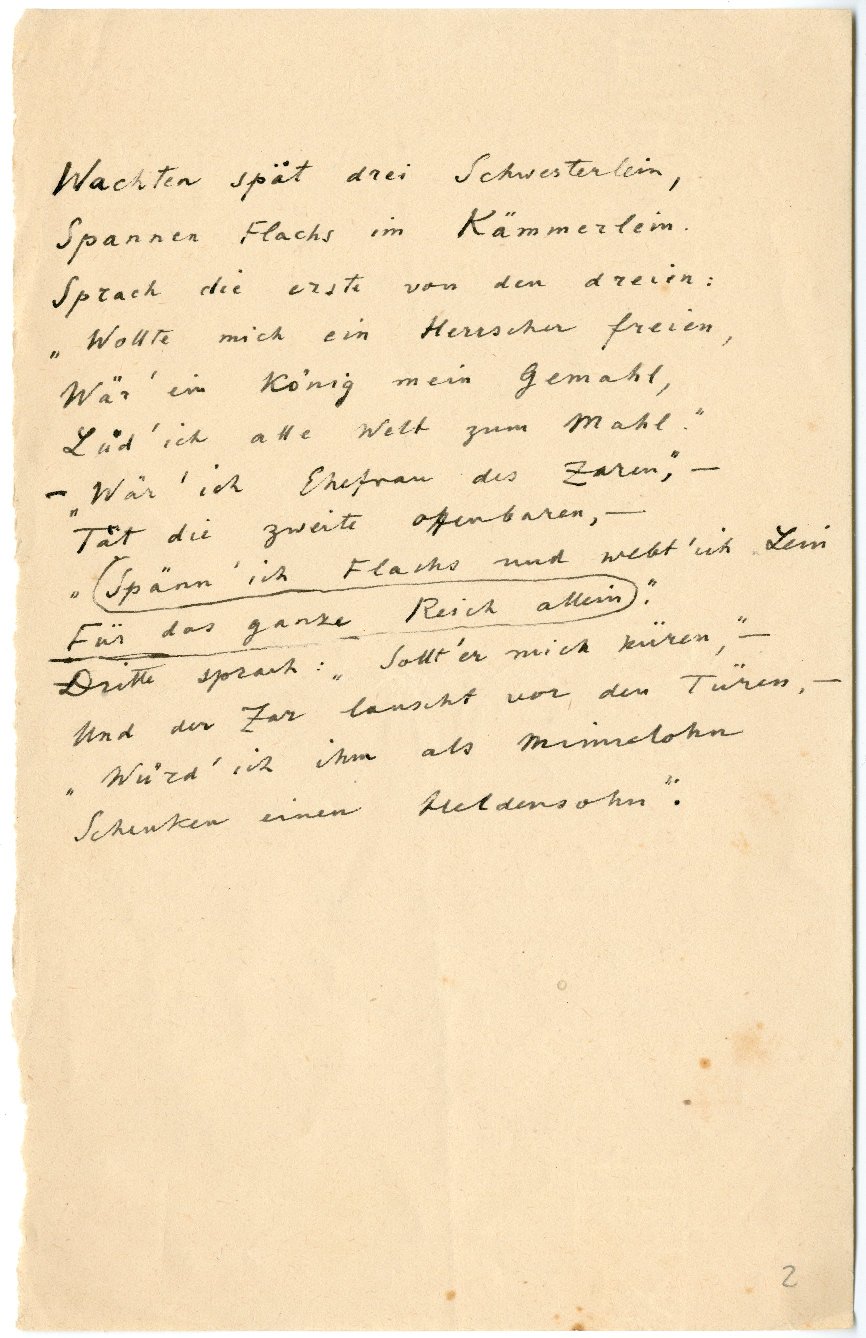 Wachten spät drei Schwesterlein,
Spannen Flachs im Kämmerlein.
Sprach die erste von den dreien:
„Wollte mich ein Herrscher freien,
Wär' ein König mein Gemahl,
Lüd' ich alle Welt zum Mahl."
– „Wär' ich Ehefrau des Zaren," –
Tät die zweite offenbaren, –
„Spänn' ich Flachs und webt' ich Lein
Für das ganze Reich allein".
Dritte sprach: „Sollt' er mich küren," –
Und der Zar lauscht vor den Türen, –
„Würd' ich ihm als Minnelohn
Schenken einen Heldensohn".
2